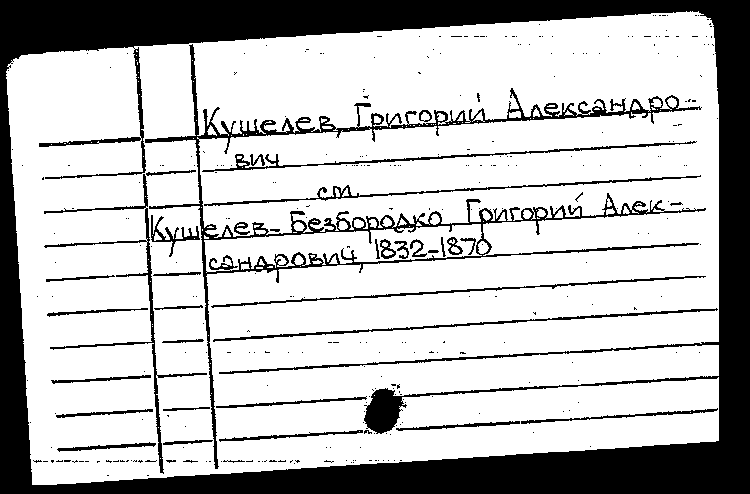 Кушелев, Григорий Александро-
вич
см.
Кушелев-Безбородко, Григорий Алек-
сандрович, 1832-1870